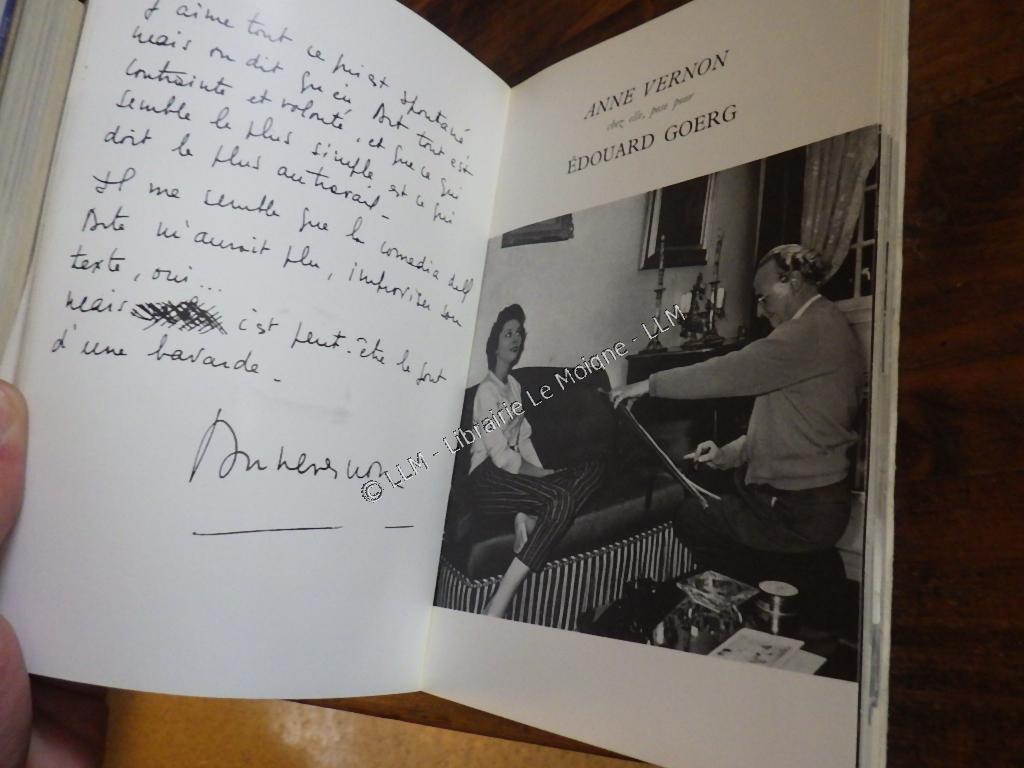 J'aime tout ce qui est spontané
mais on dit qu'en Art tout est
contrainte et volonté, et que ce qui
semble le plus simple est ce qui
doit le plus au travail -
Il me semble que la comedia dell
Arte m'aurait plu, improviser son
texte, oui...
mais c'est peut-être le goût
d'une bavarde -
Anne Vernon
ANNE VERNON
chez elle, pose pour
ÉDOUARD GOERG
© LLM - Librairie Le Moigne - LLM